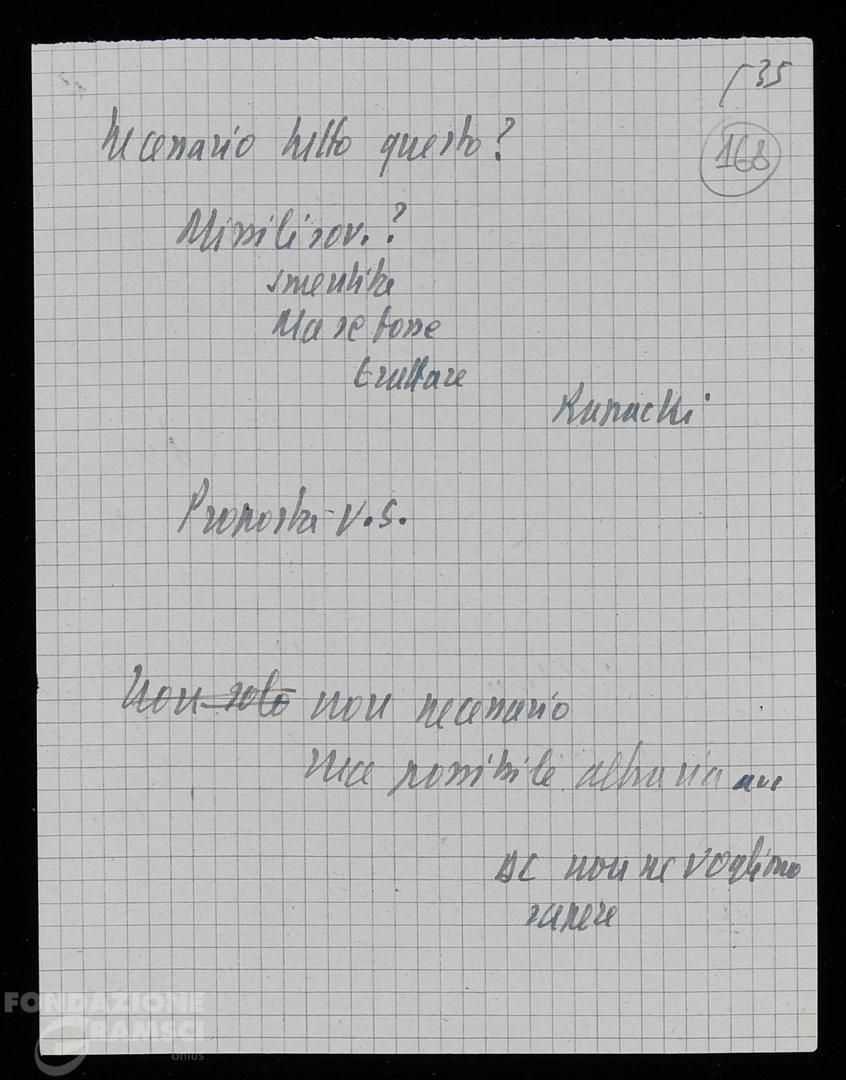 35
168
Necessario tutto questo?
Missili sov.?
smentita
Ma se fosse
trattare
Rapacki
Proposta V.S.
Non solo non necessario
ma possibile altra via
DC non ne vogliono
sapere
FONDAZIONE
GRAMSCI
onlus